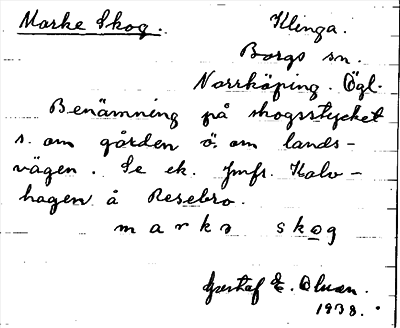 Marke Skog.
Klinga.
Borgs sn.
Norrköping. Ögl.
Benämning på skogsstycket
s. om gården ö. om lands-
vägen. Se ek. Jmfr. Kalv-
hagen å Resebro.
marke skog
Gustaf E. Olsson.
1938.